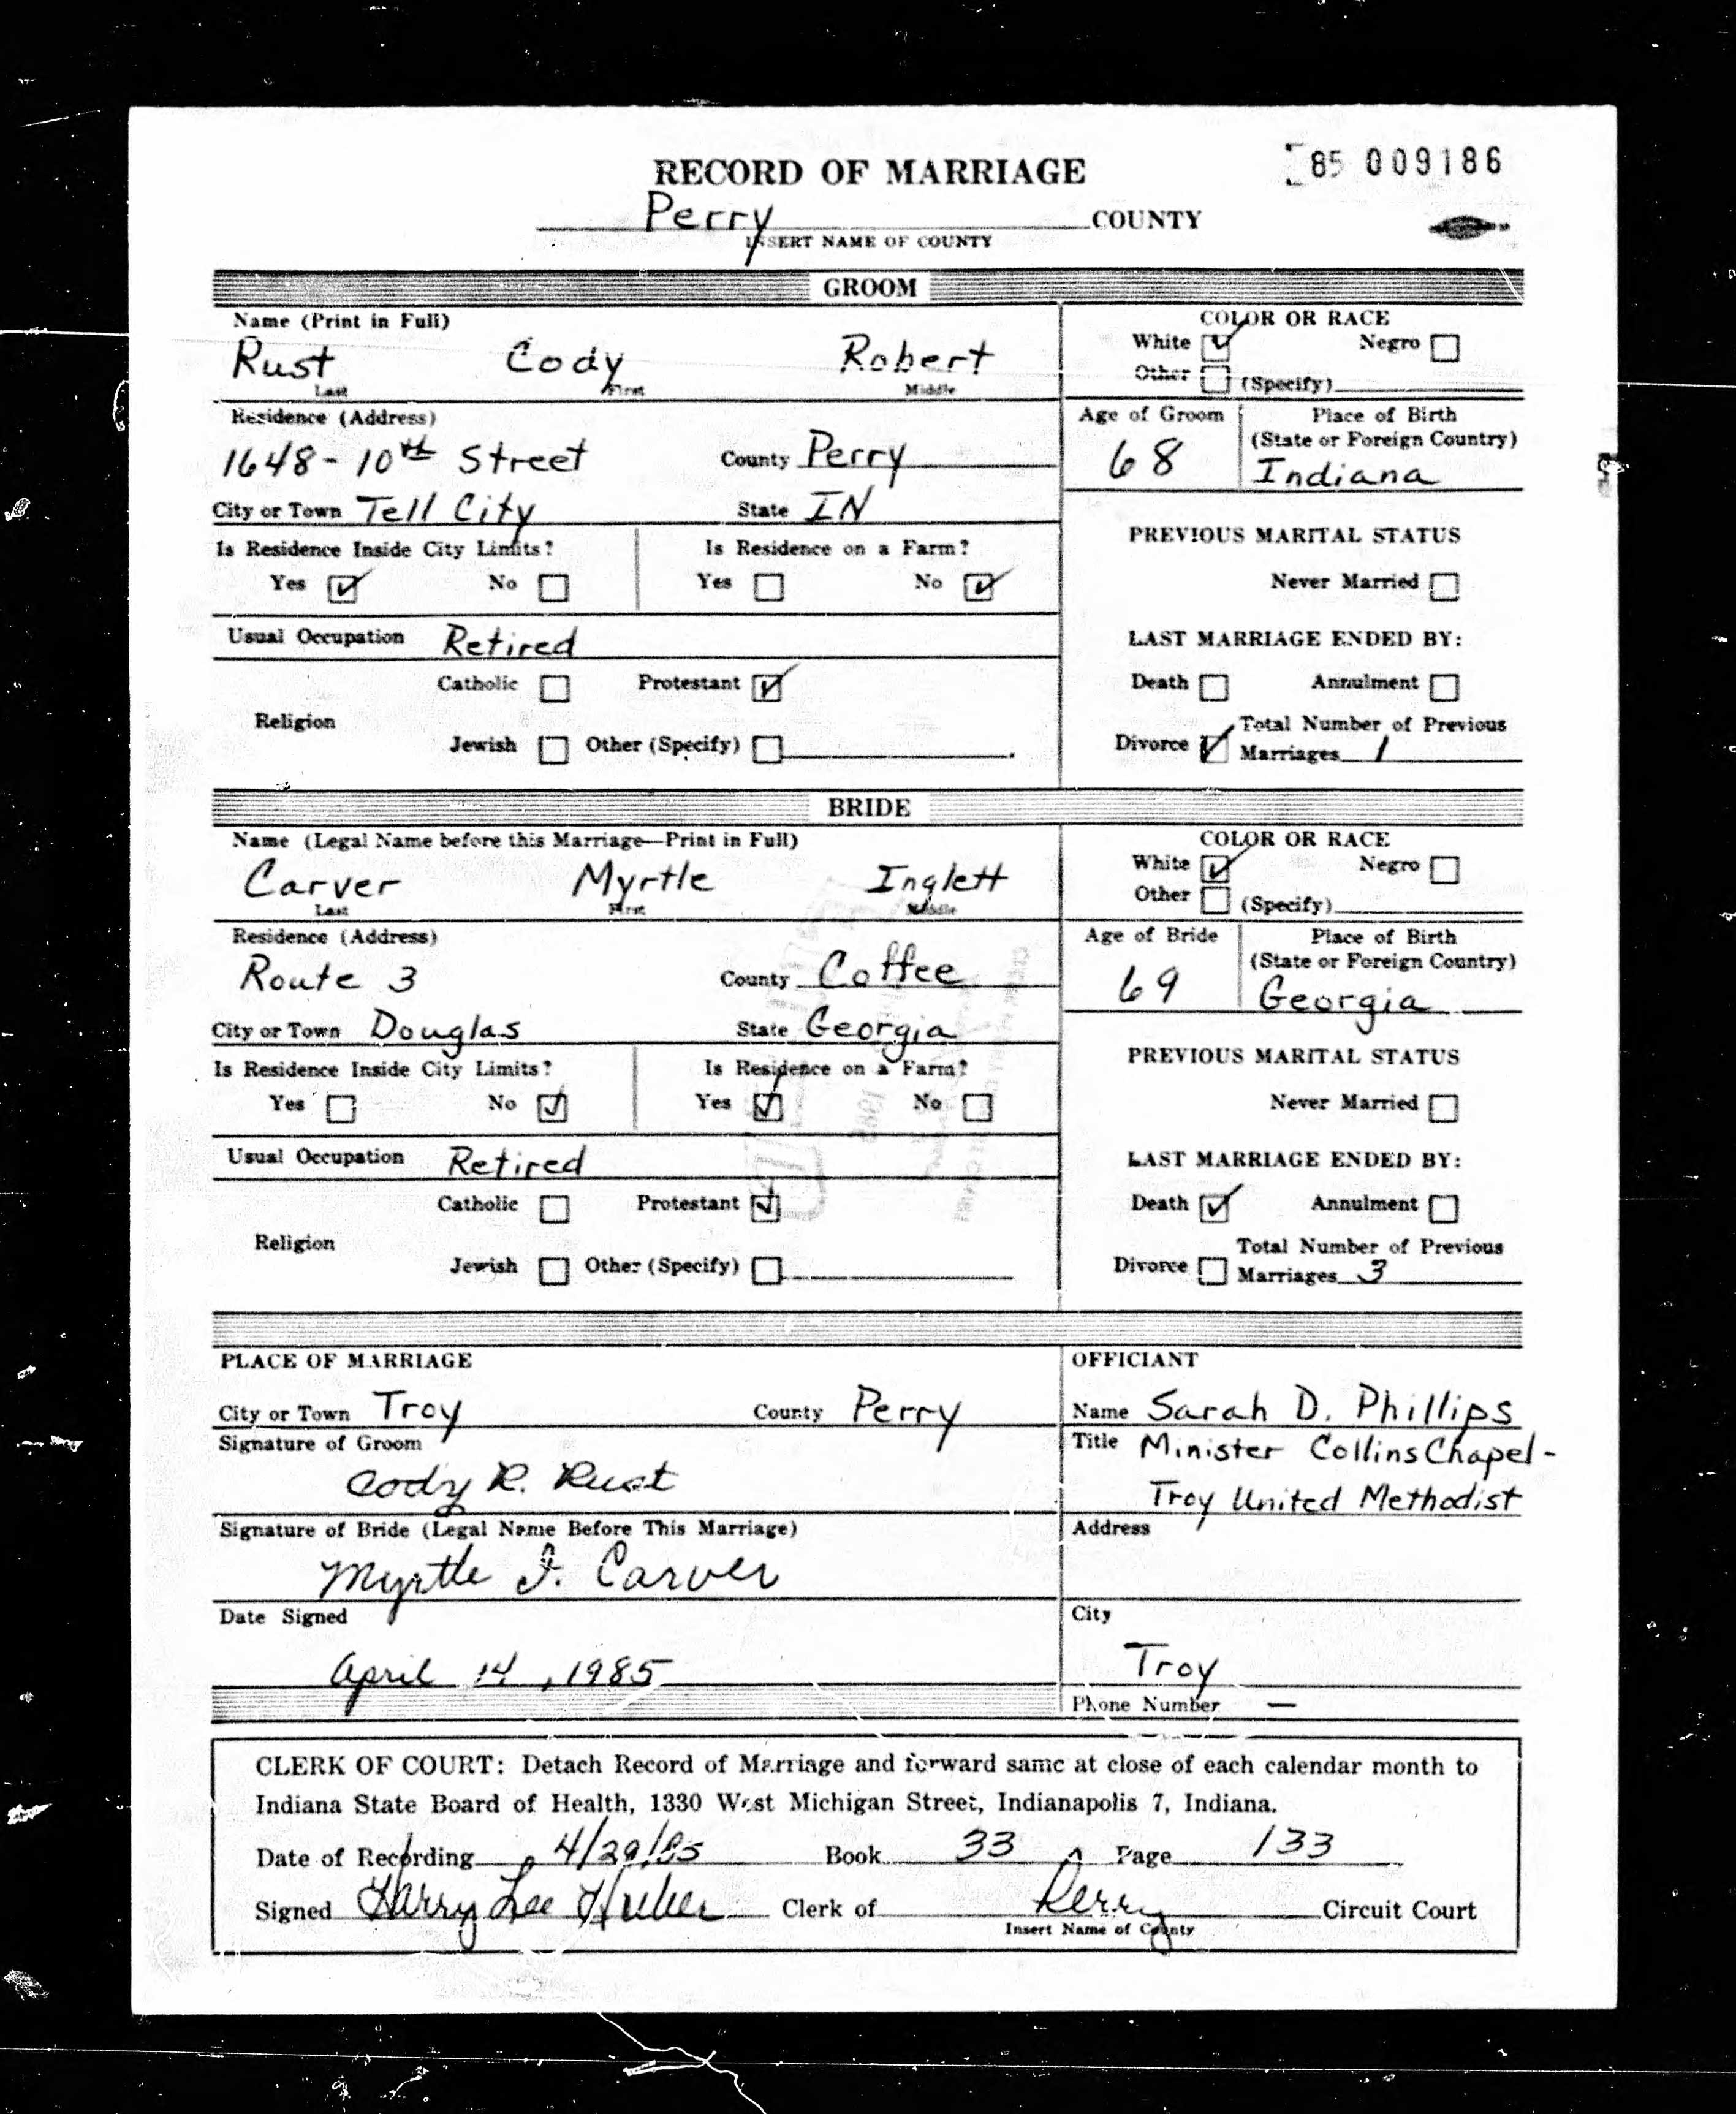 RECORD OF MARRIAGE
85 009186
Perry COUNTY
INSERT NAME OF COUNTY
GROOM
Name (Print in Full)
Rust Cody Robert
Last First Middle
COLOR OR RACE
White ☑ Negro ☐
Other ☐ (Specify)
Residence (Address)
1648 - 10th Street County Perry
City or Town Tell City State IN
Age of Groom
68
Place of Birth
(State or Foreign Country)
Indiana
Is Residence Inside City Limits?
Yes ☑ No ☐
Is Residence on a Farm?
Yes ☐ No ☑
PREVIOUS MARITAL STATUS
Never Married ☐
Usual Occupation Retired
LAST MARRIAGE ENDED BY:
Death ☐ Annulment ☐
Divorce ☑ Total Number of Previous
Marriages 1
Catholic ☐ Protestant ☑
Religion
Jewish ☐ Other (Specify) ☐
BRIDE
Name (Legal Name before this Marriage—Print in Full)
Carver Myrtle Inglett
Last First Middle
COLOR OR RACE
White ☑ Negro ☐
Other ☐ (Specify)
Residence (Address)
Route 3 County Coffee
City or Town Douglas State Georgia
Age of Bride
69
Place of Birth
(State or Foreign Country)
Georgia
Is Residence Inside City Limits?
Yes ☐ No ☑
Is Residence on a Farm?
Yes ☑ No ☐
PREVIOUS MARITAL STATUS
Never Married ☐
Usual Occupation Retired
LAST MARRIAGE ENDED BY:
Death ☑ Annulment ☐
Divorce ☐ Total Number of Previous
Marriages 3
Catholic ☐ Protestant ☑
Religion
Jewish ☐ Other (Specify) ☐
PLACE OF MARRIAGE
City or Town Troy County Perry
Signature of Groom
Cody R. Rust
Signature of Bride (Legal Name Before This Marriage)
Myrtle I. Carver
Date Signed
April 14, 1985
OFFICIANT
Name Sarah D. Phillips
Title Minister Collins Chapel -
Troy United Methodist
Address
City
Troy
Phone Number —
CLERK OF COURT: Detach Record of Marriage and forward same at close of each calendar month to
Indiana State Board of Health, 1330 West Michigan Street, Indianapolis 7, Indiana.
Date of Recording 4/29/85 Book 33 Page 133
Signed Harry Lee Huber Clerk of Perry Circuit Court
Insert Name of County